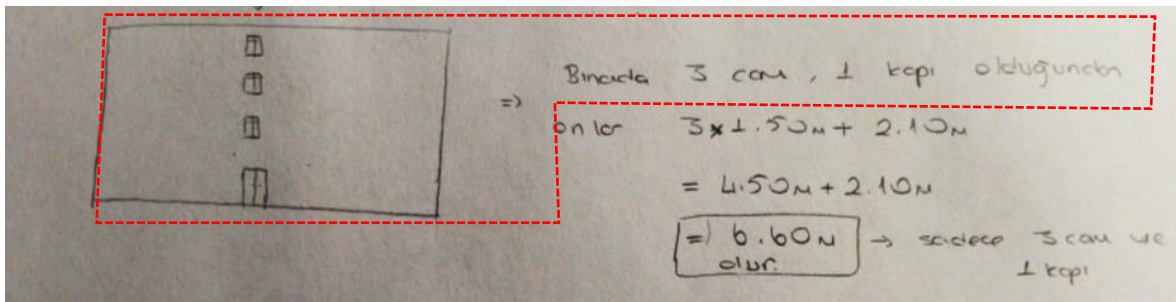 => Binada 3 cam, 1 kapı olduğundan
onlar 3x1.50м + 2.10м
= 4.50м + 2.10м
=) 6.60м → sadece 3 cam ve
olur. 1 kapı